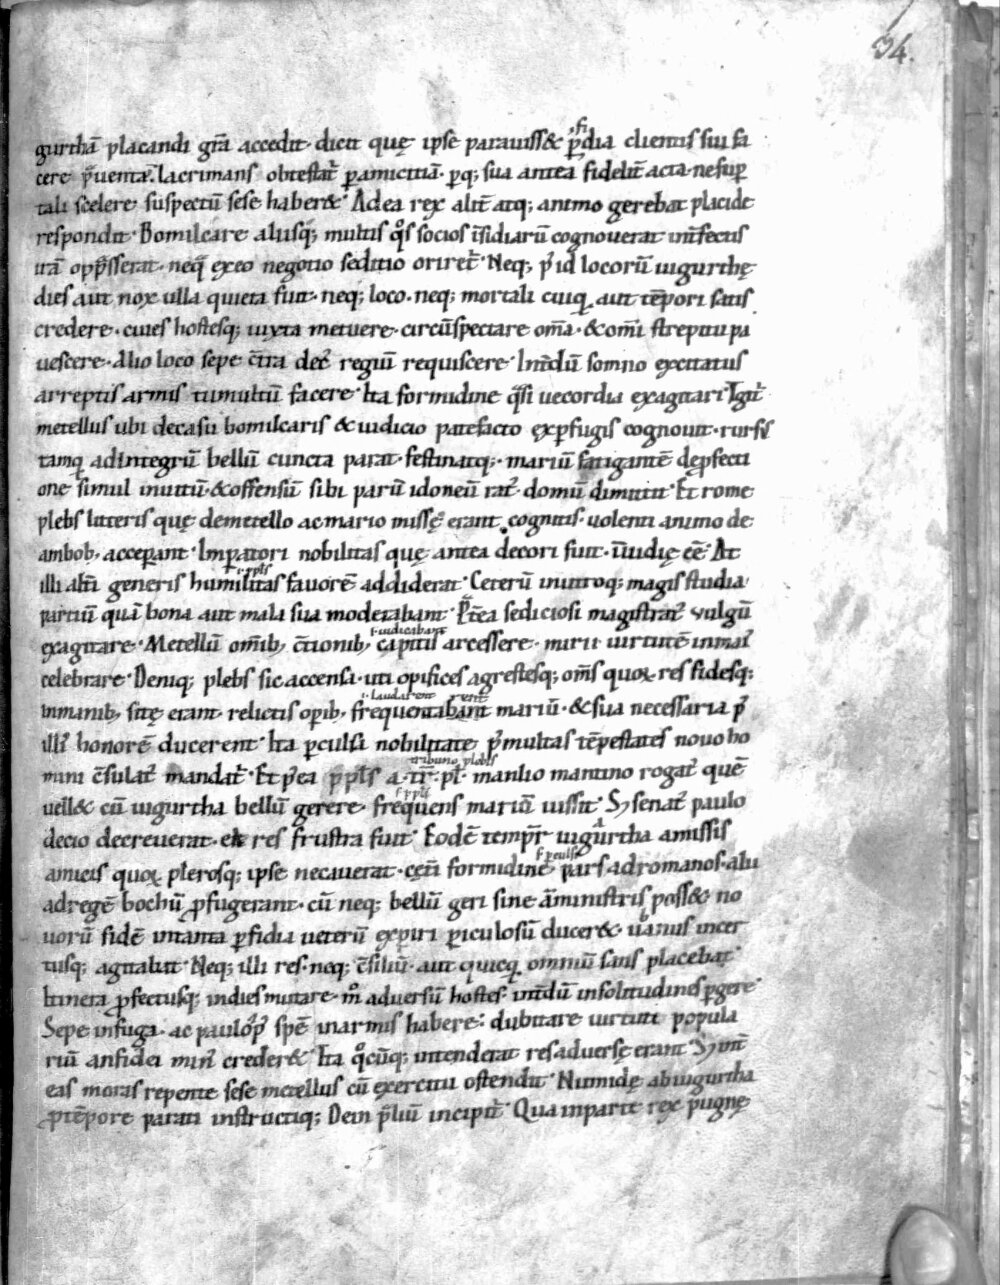 34.
gurthā placandi grā accedit· dicit quę ipse parauiss& p̄fidia clientis sui fa
cere p̄uenta· lacrimans obtestat̄ p amicitiā· p q; sua antea fidelit̄ acta· ne sup
tali scelere suspectū sese haber&· Ad ea rex alit̄ atq; animo gerebat placide
respondit· Bomilcare aliisq; multis q̊s socios īsidiarū cognouerat int̄fectis
irā opp̄sserat· neq̄ ex eo negotio seditio oriret̄· Neq; p̄ id locorū iugurthę
dies aut nox ulla quieta fuit· neq; loco· neq; mortali cuiq̨ aut tēpori satis
credere· ciues hostesq; iuxta metuere· circūspectare om̄a· & om̄i strepitu pa
uescere· Alio loco sepe c̄tra dec̄ regiū requiescere· Int̄dū somno excitatus
arreptis armis tumultū facere· Ita formidine q̄si uecordia exagitari· Igit̄
metellus ubi de casu bomilcaris & iudicio patefacto ex pfugis cognouit· rursus
tamq̨ ad integrū bellū cuncta parat· festinatq;· mariū fatigantē de pfecti
one simul inuitū· & offensū sibi parū idoneū rat̄· domū dimittit· Et rome
plebs litteris quę de metello ac mario missę erant cognitis· uolenti animo de
ambob; accepant· Impatori nobilitas quę antea decori fuit· īuidię eē· At
illi alt̄i generis humilitas fauorē addiderat· Ceterū in utroq; magis studia
partiū quā bona aut mala sua moderabant· P̄t̄ea sediciosi magistrat̄ vulgū
exagitare· Metellū om̄ib; c̄tionib; capitis arcessere· marii uirtutē in mai̓
celebrare· Deniq; plebs sic accensa· uti opifices agrestesq; om̄s quoꝝ res fidesq;
in manib; sitę erant· relictis opib; frequentabant mariū· & sua necessaria p̄
illi̓ honorē ducerent· Ita pculsa nobilitate p̄ multas tēpestates nouo ho
mini c̄sulat̄ mandat̄· Et p̄ea p̄pls a· tr̄· pl̄· manlio mantino rogat̄ quē
uell& cū iugurtha bellū gerere· frequens mariū iussit· S; senat̄ paulo
decio decreuerat· ea res frustra fuit· Eodē temp̄r iugurtha amissis
amicis quoꝝ plerosq; ipse necauerat· cęt̄i formidine pars ad romanos· alii
ad regē bochū pfugerant· cū neq; bellū geri sine āministris poss& no
uorū fidē in tanta pfidia ueterū expiri piculosū ducer&· uarius incer
tusq; agitabat· Neq; illi res· neq; c̄siliū· aut quicq̨ ominū satis placebat
Itinera pfectusq; in dies mutare· m̊ aduersū hostes· int̄dū in solitudines pgere·
Sepe in fuga· ac paulo p̊ spē in armis habere· dubitare uirtuti popula
riū an fidei min̓ creder&· Ita q̊cūq; intenderat res aduersę erant· S; int̄
eas moras repente sese metellus cū exercitu ostendit· Numidę ab iugurtha
p tēpore parati instructiq; Dein p̄liū incipit̄· Qua in parte rex pugnę